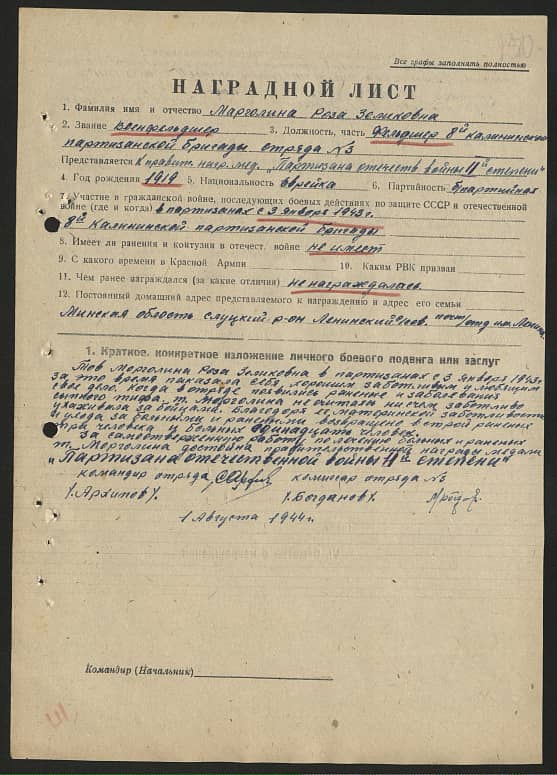 Все графы заполнять полностью
НАГРАДНОЙ ЛИСТ
1. Фамилия имя и отчество Марголина Роза Зеликовна
2. Звание военфельдшер 3. Должность, часть Фельдшер 8й калининской
партизанской бригады отряда №3
Представляется к правит. нагр. мед. „Партизана отечеств войны II й степени"
4. Год рождения 1919 5. Национальность еврейка 6. Партийность б/партийная
7. Участие в гражданской войне, последующих боевых действиях по защите СССР и отечественной
войне (где и когда) в партизанах с 3 января 1943 г.
8й Калининской партизанской бригады
8. Имеет ли ранения и контузии в отечест. войне не имеет
9. С какого времени в Красной Армии 10. Каким РВК призван
11. Чем ранее награждался (за какие отличия) не награждалась
12. Постоянный домашний адрес представляемого к награждению и адрес его семьи
Минская область слуцкий р-он Ленинский с/сов. пост/отд им. Ленина
1. Краткое, конкретное изложение личного боевого подвига или заслуг
Тов Марголина Роза Зеликовна в партизанах с 3 января 1943г
за это время показала себя, хорошим заботливым и любящим
свое дело. Когда в отряде появились ранение и заболевания
сыпного тифа. т. Марголина не считаясь ни с чем заботливо
ухаживала за бойцами. Благодаря ее материнской заботливости
и ухода за больными и ранеными возвращено в строй раненых
три человека и больных одинадцать человек.
За самоотверженную работу по лечению больных и раненых
т. Марголина достойна правительственной награды медали
„Партизана отечественной войны II й степени"
командир отряда комисар отряда №3
/Архипов/ /Богданов/
1 Августа 1944 г.
Командир (Начальник)